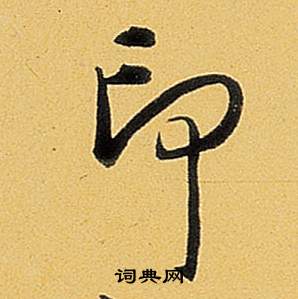 印
词典网